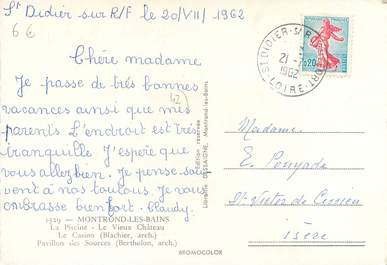 St Didier sur R/F le 20/VII/1962
6€
Chère madame
Je passe de très bonnes
vacances ainsi que mes
parents L'endroit est très
tranquille. J'espère que
vous allez bien. Je pense sou-
vent à nos toutous. Je vous
embrasse bien fort. Claudy.
42
1529 — MONTROND-LES-BAINS
La Piscine - Le Vieux Château
Le Casino (Blachier, arch.)
Pavillon des Sources (Berthelon, arch.)
Édition réservée
Librairie Montrond-les-Bains
BROMOCOLOR
ST DIDIER-S-ROCHEFORT
21 -7
1962
LOIRE
0,20
Madame
E. Ponyade
St Victor de Cessieu
Isère